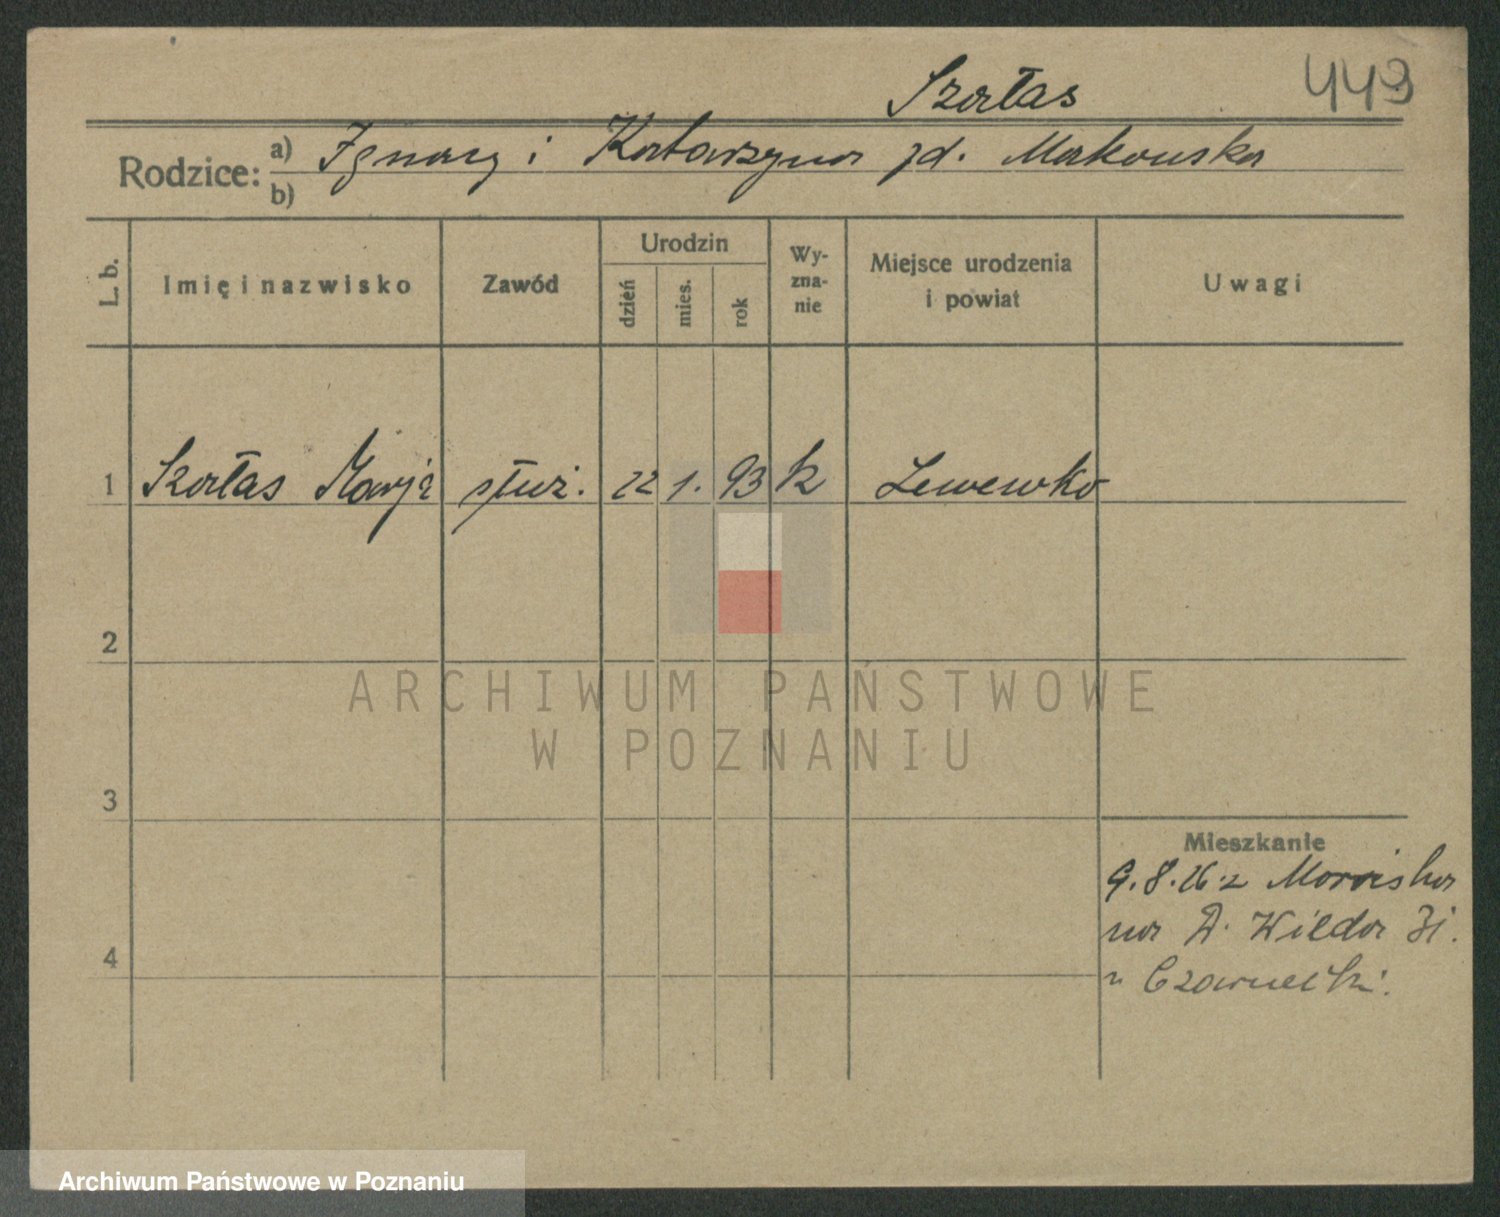 449
Szałas
Rodzice: a) Ignacy i Katarzyna zd. Makowska
b)
L. b.
Imię i nazwisko
Zawód
Urodzin
dzień
mies.
rok
Wy-
zna-
nie
Miejsce urodzenia
i powiat
Uwagi
1 Szałas Marja służ. 22 1. 93 k
2
3
4
Mieszkanie
9.8.26 z
na D. Wilda 31.
u Czarnecki.
ARCHIWUM PAŃSTWOWE
W POZNANIU
Archiwum Państwowe w Poznaniu